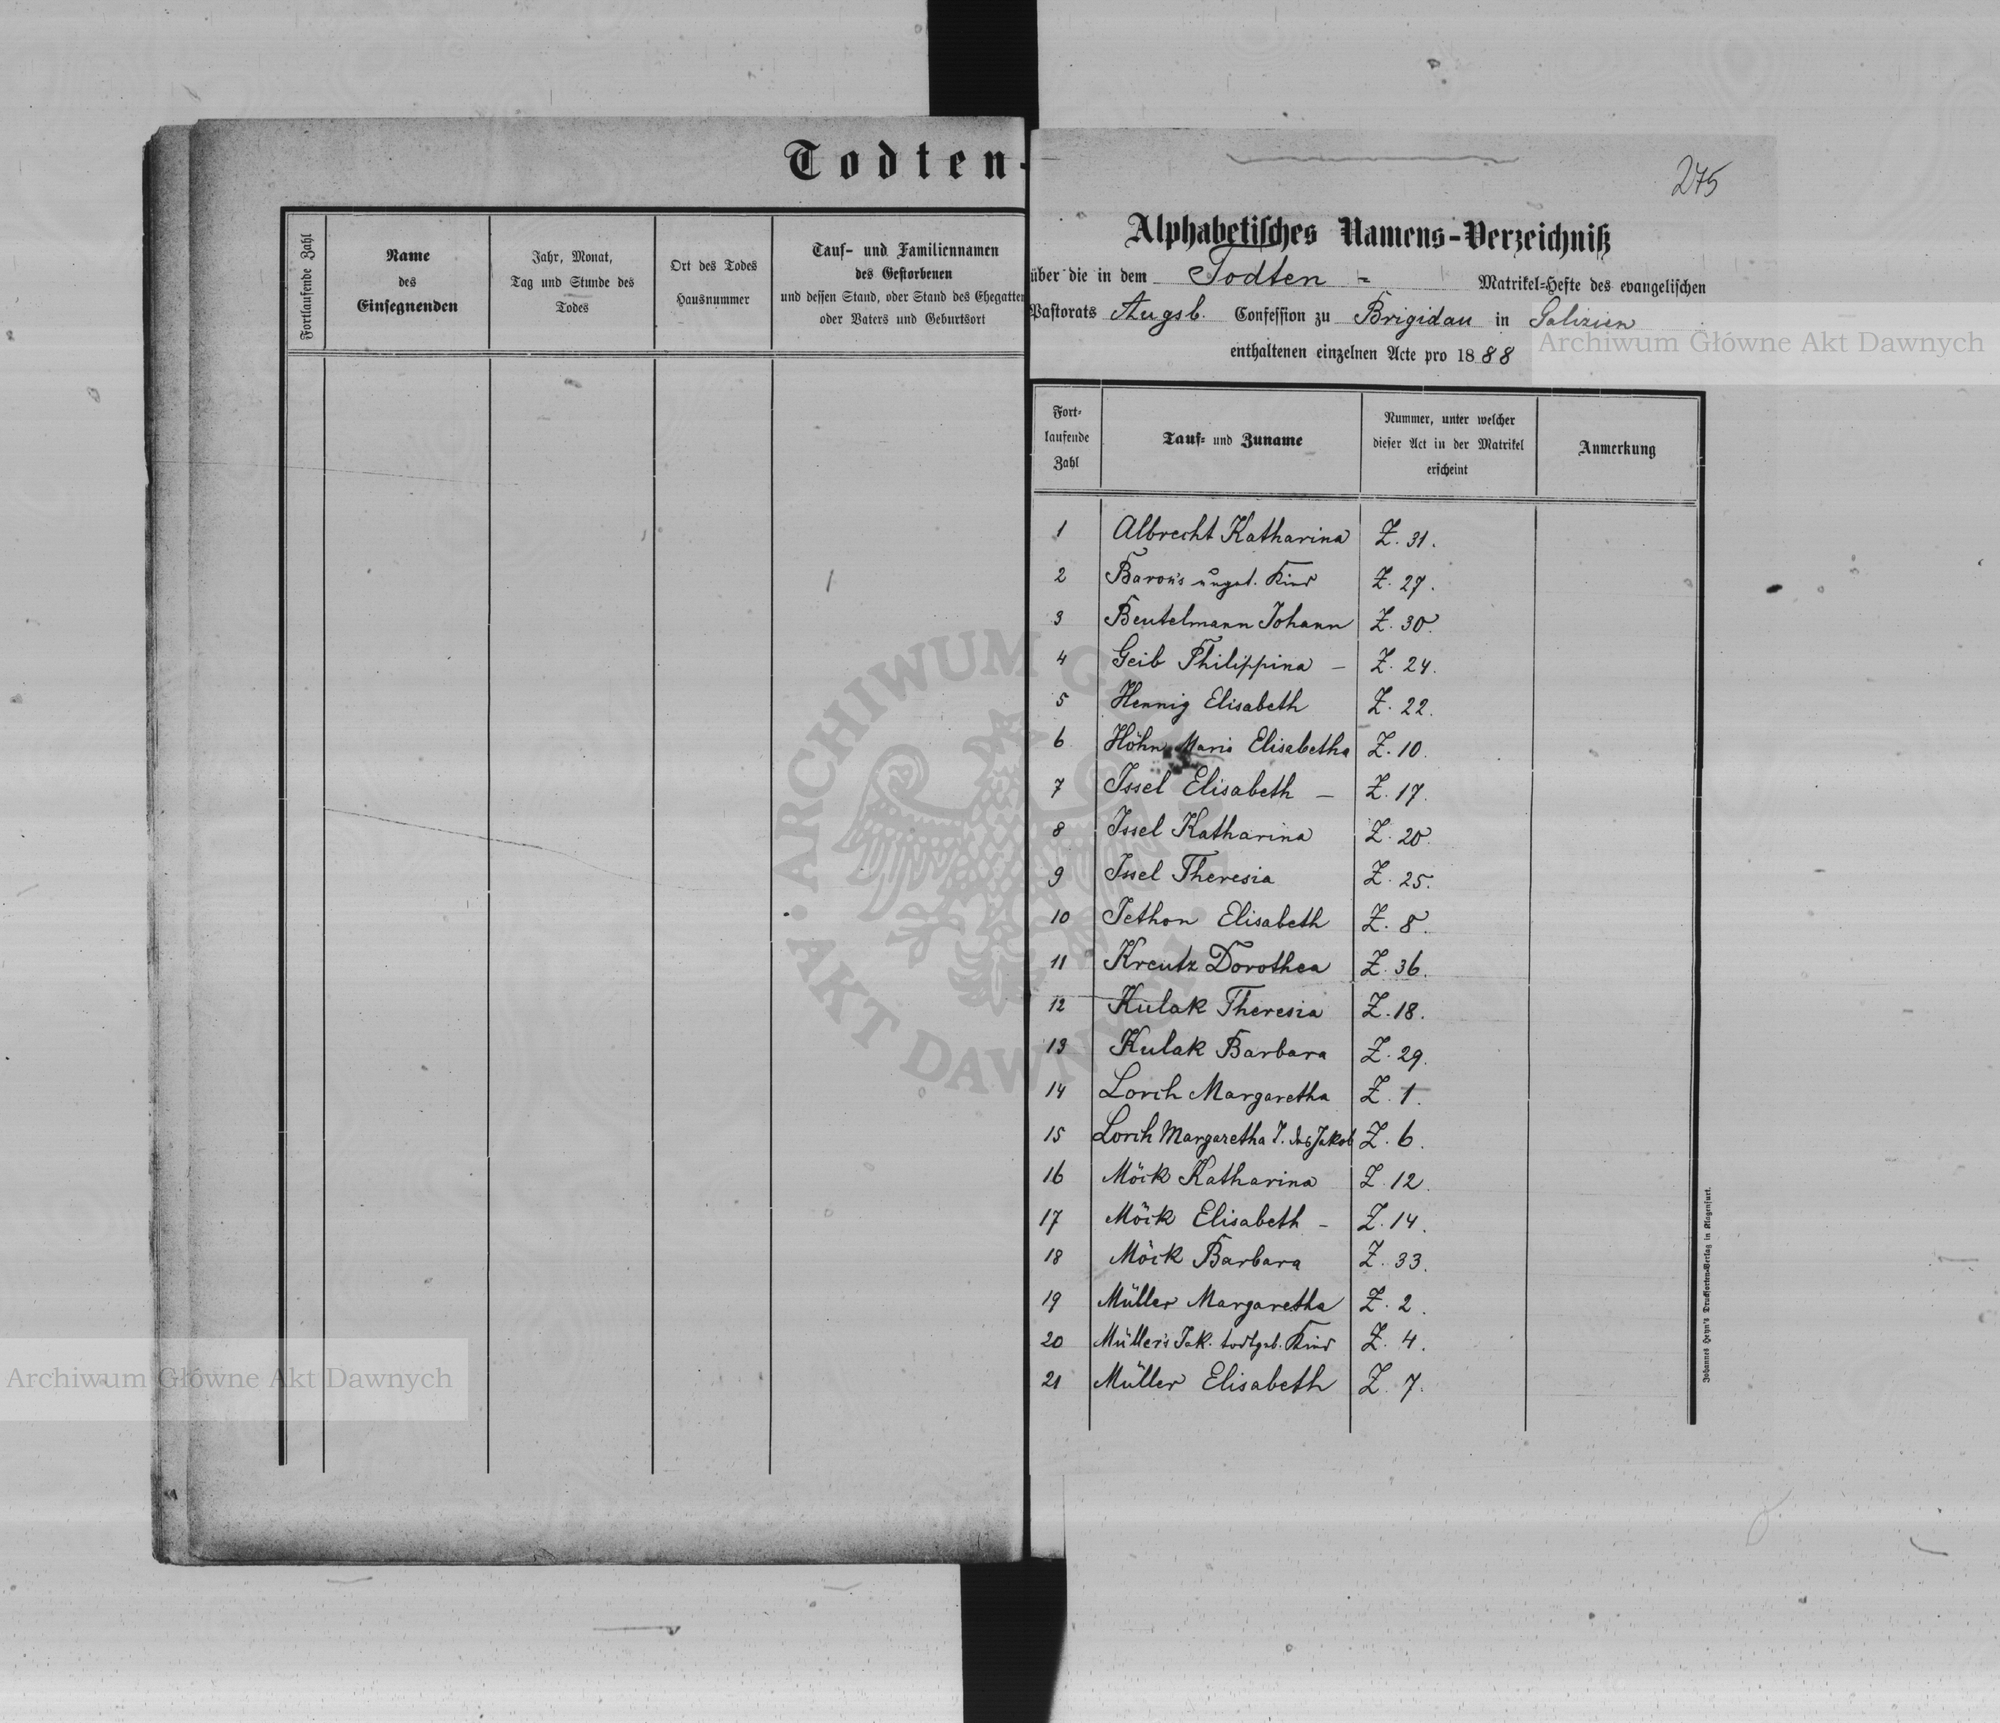 Todten-
Fortlaufende Zahl
Name
des
Einsegnenden
Jahr, Monat,
Tag und Stunde des
Todes
Ort des Todes
Hausnummer
Tauf- und Familiennamen
des Gestorbenen
und dessen Stand, oder Stand des Ehegatten
oder Vaters und Geburtsort
275
Alphabetisches Namens-Verzeichniß
über die in dem Todten - Matrikel-Hefte des evangelischen
Pastorats Augsb. Confession zu Brigidau in Galizien
enthaltenen einzelnen Acte pro 1888
Fort-
laufende
Zahl
Tauf- und Zuname
Nummer, unter welcher
dieser Act in der Matrikel
erscheint
Anmerkung
1 Albrecht Katharina Z. 31.
2 Baron's unget. Kind Z. 27.
3 Beutelmann Johann Z. 30.
4 Geib Philippina – Z. 24.
5 Hennig Elisabeth Z. 22.
6 Höhn Maria Elisabetha Z. 10.
7 Issel Elisabeth – Z. 17.
8 Issel Katharina Z. 20.
9 Issel Theresia Z. 25.
10 Jethon Elisabeth Z. 8.
11 Kreutz Dorothea Z. 36.
12 Kulak Theresia Z. 18.
13 Kulak Barbara Z. 29.
14 Lorch Margaretha Z. 1.
15 Lorch Margaretha T. des Jakob Z. 6.
16 Möck Katharina Z. 12.
17 Möck Elisabeth – Z. 14.
18 Möck Barbara Z. 33.
19 Müller Margaretha Z. 2.
20 Müller's Jak. todtgeb. Kind Z. 4.
21 Müller Elisabeth Z. 7.
Johannes Heyn's Drucksorten-Verlag in Klagenfurt.
Archiwum Główne Akt Dawnych
Archiwum Główne Akt Dawnych
ARCHIWUM G
AKT DAWN